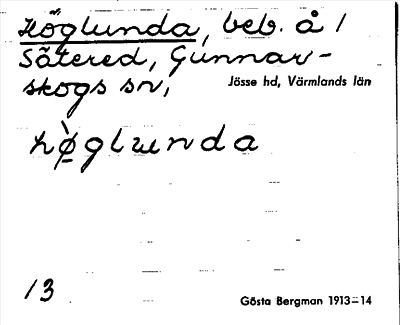 Höglunda, beb. å /
Sätered, Gunnar-
skogs sn,
Jösse hd, Värmlands län
hø̀glunda
13
Gösta Bergman 1913–14